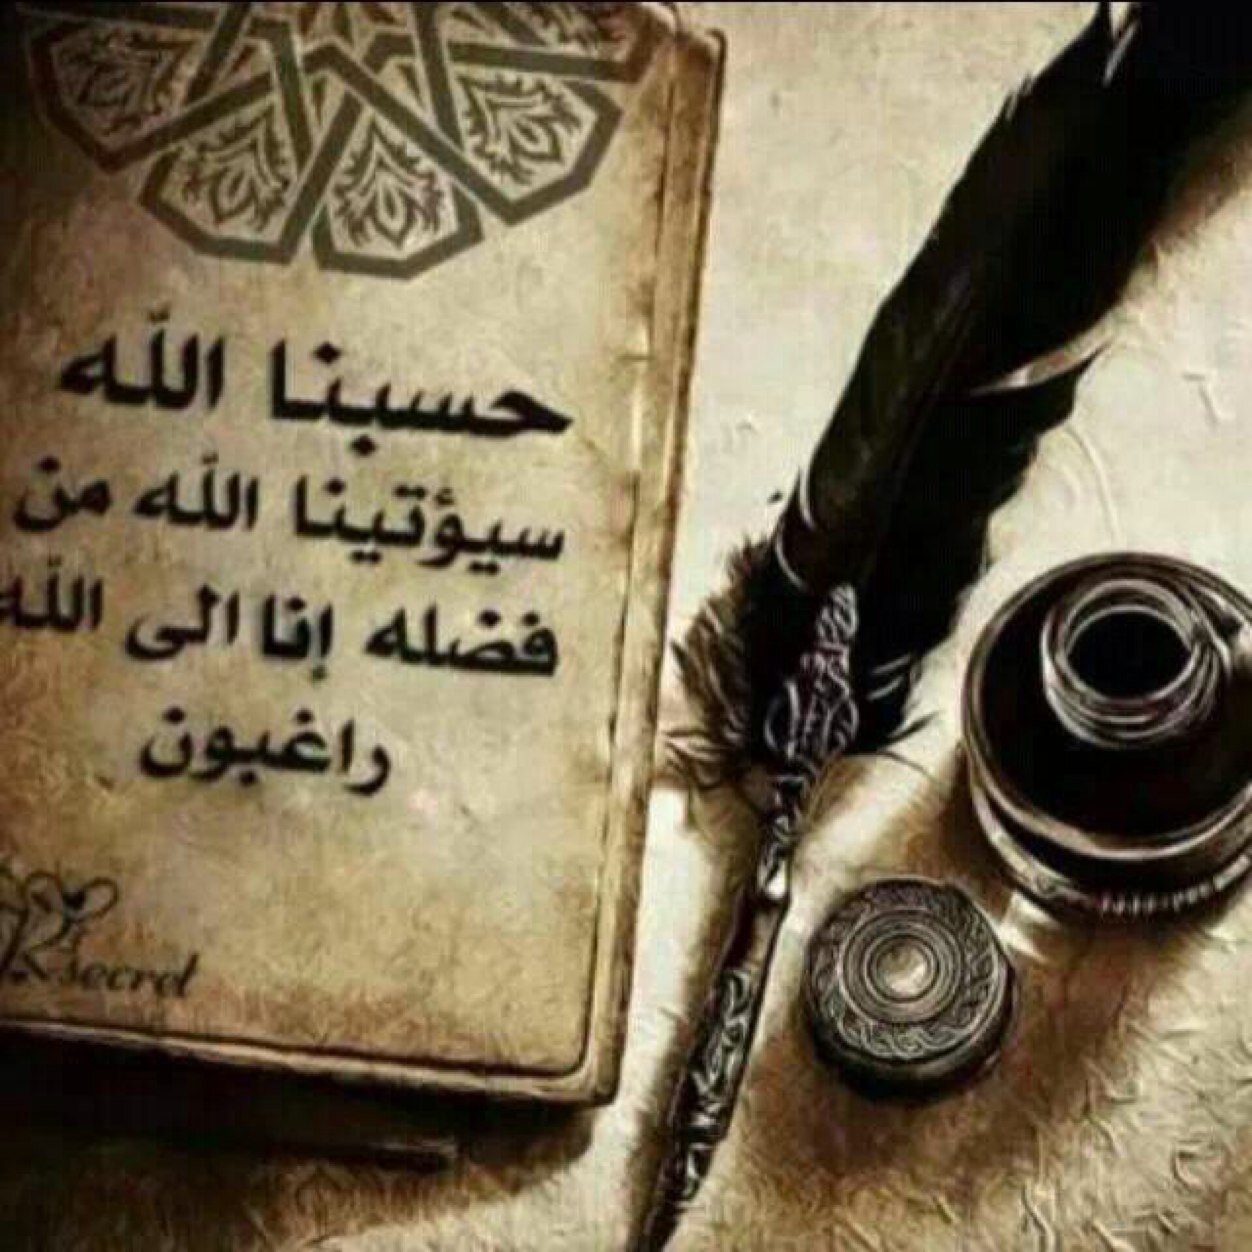 حسبنا الله
سيؤتينا الله من
فضله إنا الى الله
راغبون
secret